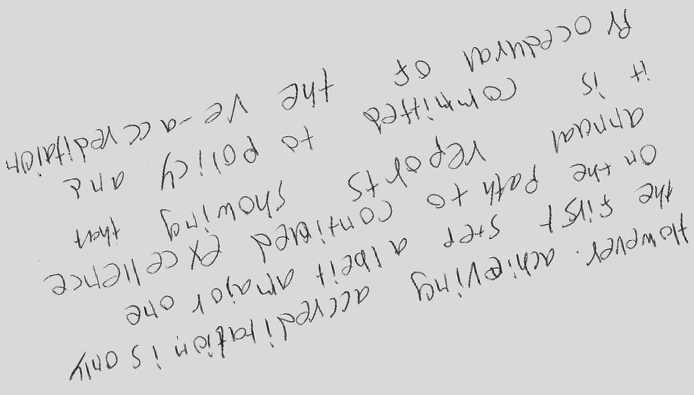 However, achieving accreditation is only
the first step albeit amajor one
on the path to contined excellence
annual reports showing that
it is committed to policy and
Procedural of the re-accreditaion